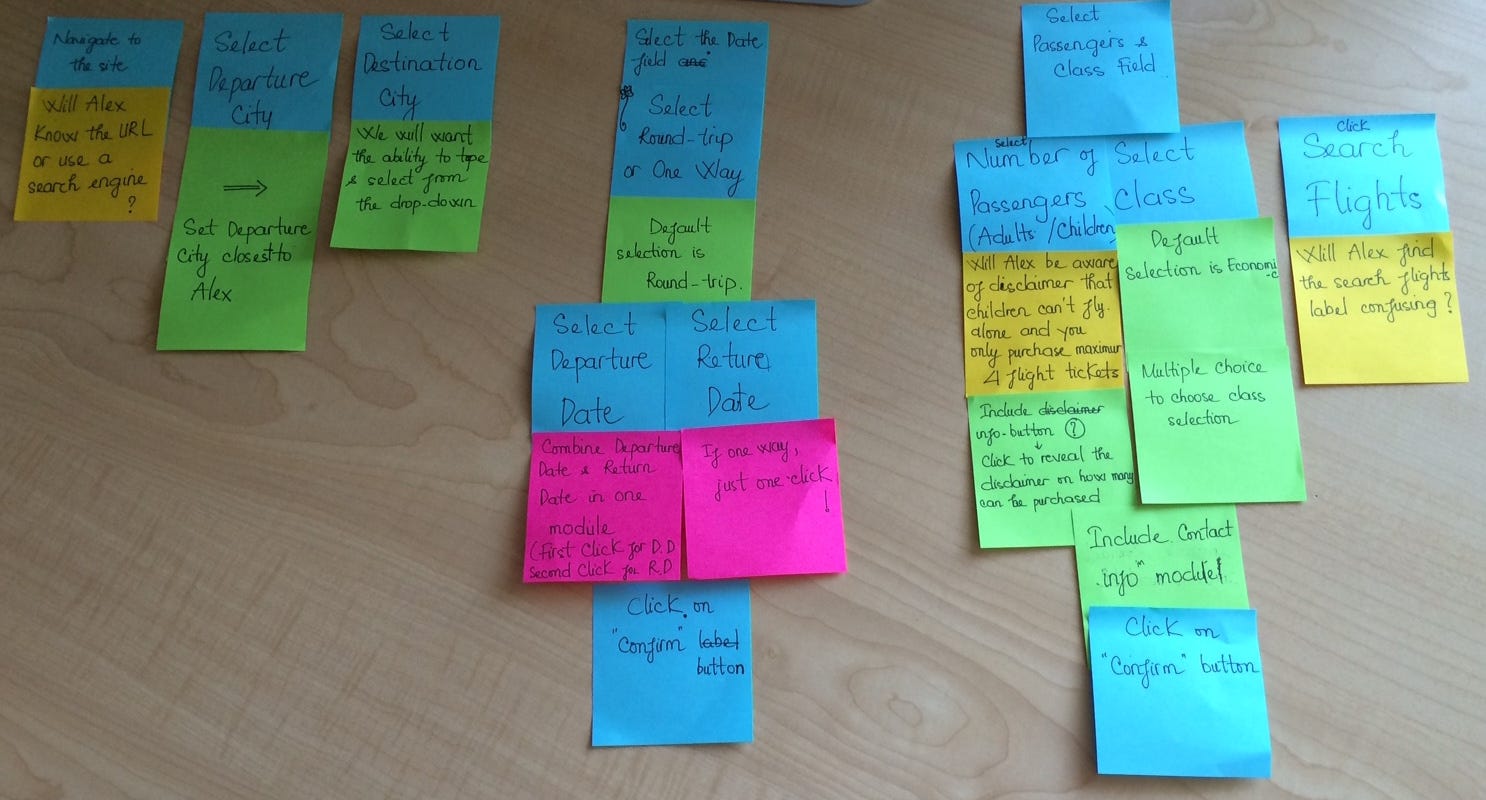 Navigate to
the site
Will Alex
Know the URL
or use a
search engine
?
Select
Departure
City
⇒
Set Departure
City closest to
Alex
Select
Destination
City
We will want
the ability to type
& select from
the drop-down
Select the Date
field and
Select
Round-trip
or One Way
Default
selection is
Round-trip.
Select
Departure
Date
Select
Return
Date
Combine Departure
Date & Return
Date in one
module
(First Click for D.D
Second Click for R.D
If one way,
just one click
!
Click on
"Confirm" label
button
Select
Passengers &
Class Field
select
Number of
Passengers
(Adults /Children
Will Alex be aware
of disclaimer that
children can't fly
alone and you
only purchase maximum
4 flight tickets
Include disclaimer
info-button ?
↓
Click to reveal the
disclaimer on how many
can be purchased
Select
Class
Default
selection is Economi
-c
Multiple choice
to choose class
selection
Include Contact
info" module!
Click on
"Confirm" button
Click
Search
Flights
Will Alex find
the search flights
label confusing ?